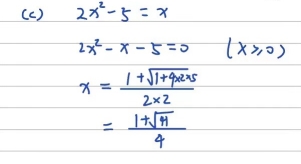 (c) 2x² - 5 = x
2x² - x - 5 = 0 (x ⩾ 0)
x = (1 + √(1 + 4×2×5)) / (2 × 2)
= (1 + √41) / 4